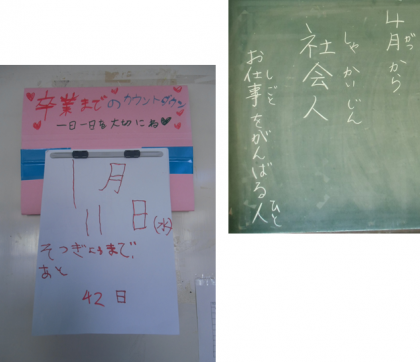 卒業までのカウントダウン
一日一日を大切にね
1月
11日(水)
そつぎょうまで、
あと
42日
4月から
がつ
社会人
しゃかいじん
お仕事をがんばる人
しごと
ひと